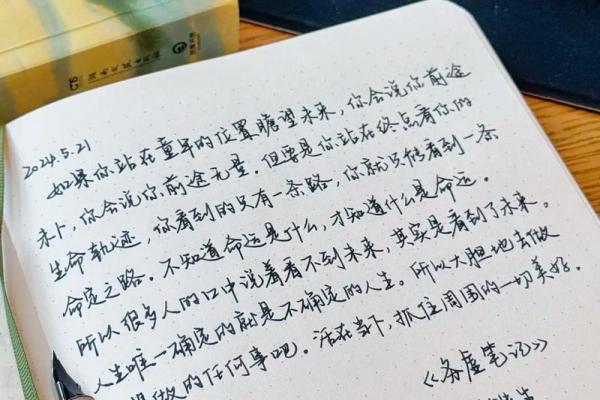 湖南文艺出版社
2024.5.21
如果你站在童年的位置瞻望未来,你会说你前途
未卜,你会说你前途无量。但要是你站在终点看你的
生命轨迹,你看到的只有一条路,你就只能看到一条
命定之路。不知道命运是什么,才知道什么是命运。
所以很多人的口中说着看不到未来,其实是看到了未来。
人生唯一确定的就是不确定的人生。所以大胆地去做
想做的任何事吧。活在当下,抓住周围的一切美好。
《务虚笔记》